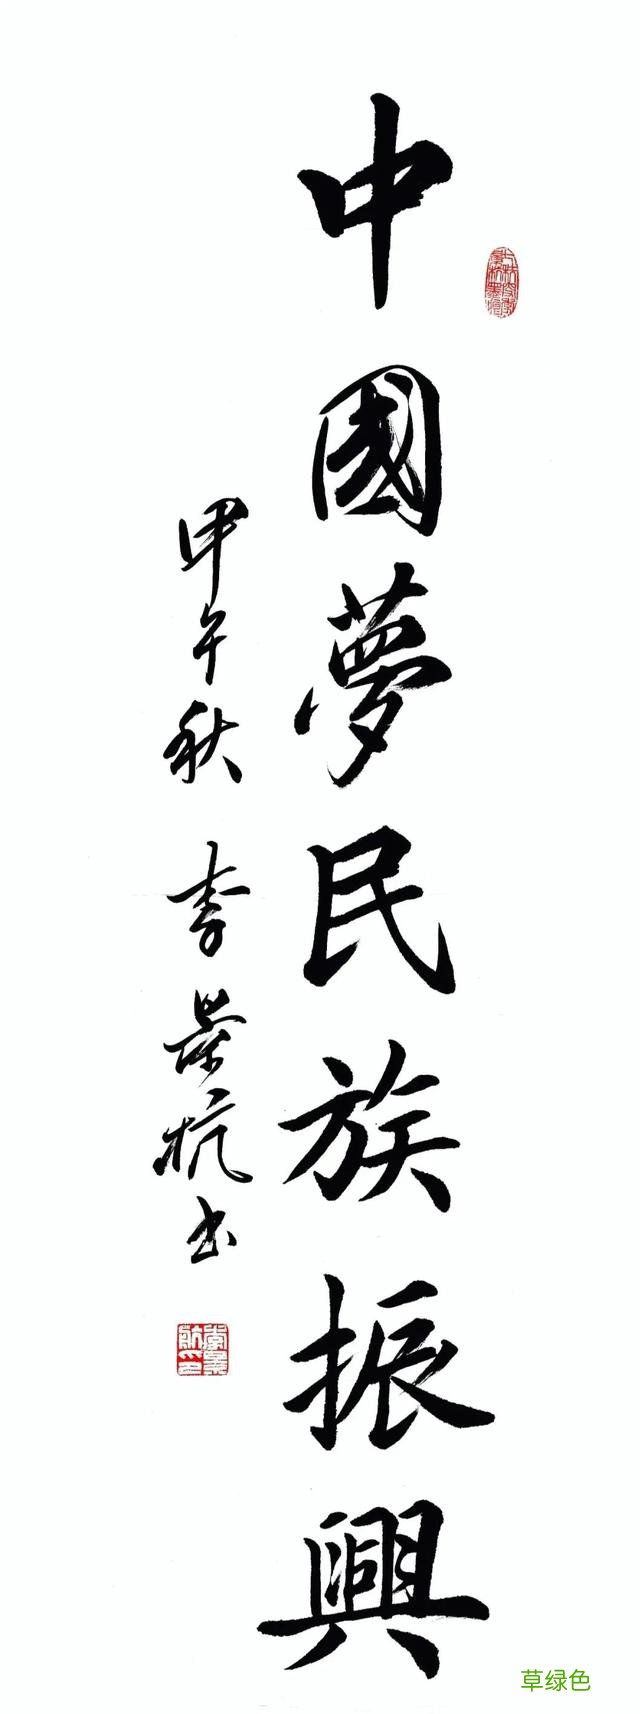 中國夢民族振興
甲午秋 李荣杭书
草绿色